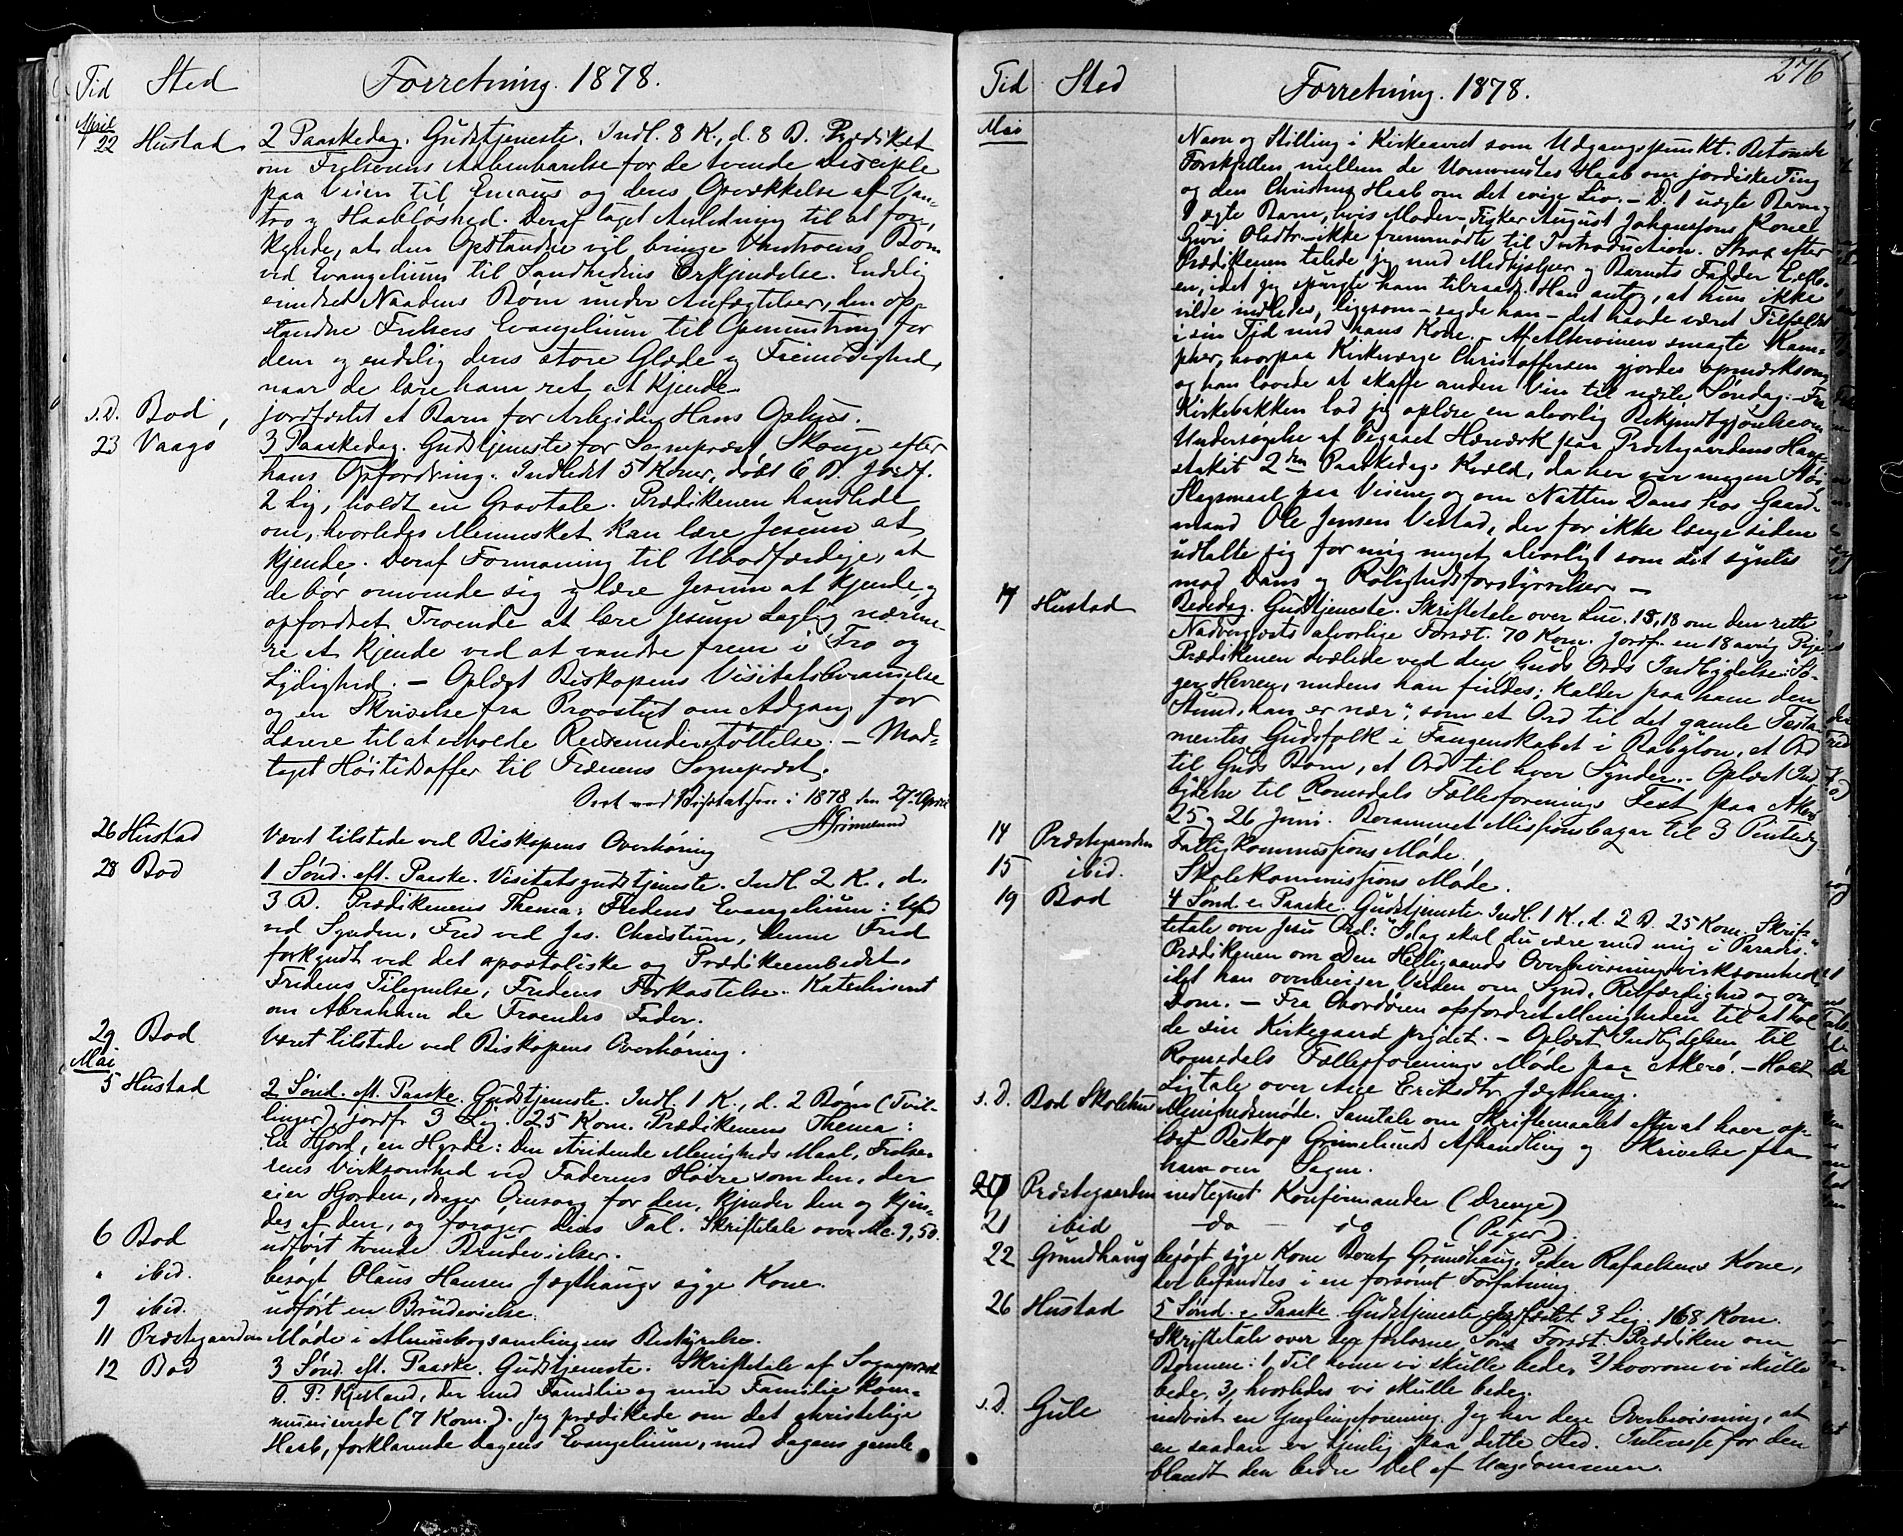 Tid Sted Forretning. 1878.
April
22 Hustad. 2 Paaskedag. Gudstjeneste. Indl. 8 K., d. 8 B. Prædiket
om Frelserens Aabenbarelse for de tvende Disciple
paa Veien til Emaus og deres Opvækkelse af Van-
tro og Haabløshed. Deraf taget Anledning til at for-
kynde, at den Opstandne vil bringe Vantroens Børn
ved Evangelium til Sandhedens Erkjendelse. Endelig
mindet Naadens Børn under Anfægtelser, den op-
standne Frelsers Evangelium til Opmuntring for
dem og endelig dens store Glæde og Frimodighed,
naar de lære ham ret at kjende.
s.D. Bod, jordfæstet et Barn for Arbeider Hans Ophus.
23 Vaagø 3 Paaskedag. Gudstjeneste for Sognepræst Skouge efter
hans Opfordring. Indledt 5 Koner, døbt 6 B. Jordf.
2 Lig, holdt en Gravtale. Prædikenen handlede
om, hvorledes Mennesket kan lære Jesum at
kjende. Deraf Formaning til Ubodfærdige, at
de bør omvende sig og lære Jesum at kjende, og
opfordret Troende at lære Jesum daglig nærme-
re at kjende ved at vandre frem i Tro og
Lydighed. – Oplæst Biskopens Visitatsbrevannelse
og en Skrivelse fra Provstiet om Adgang for
Lærere til at erholde Reiseunderstøttelse. – Mod-
taget Høitidsoffer til Frænens Sognepræst.
Seet ved Visitatsen i 1878 den 27. April
AGrimelund
26 Hustad Været tilstede ved Biskopens Overhøring
28 Bod 1 Sønd. eft. Paaske. Visitatsgudstjeneste. Indl. 2 K., d.
3 B. Prædikenens Thema: Fredens Evangelium: Ufred
ved Synden, Fred ved Jes. Christum, denne Fred
forkyndt ved det apostoliske og Prædikeembedet.
Fredens Tilegnelse, Fredens Forkastelse. Katechiseret
om Abraham de Troendes Fader.
29 Bod Været tilstede ved Biskopens Overhøring.
Mai
5 Hustad 2 Sønd. eft. Paaske. Gudstjeneste. Indl. 1 K., d. 2 Børn (Tvil-
linger), jordf. 3 Lig. 25 Kom. Prædikenens Thema:
En Hjord, en Hyrde: Den stridende Menigheds Maal, Frelse-
rens Virksomhed ved Faderens Høire som den, der
eier Hjorden, drager Omsorg for den, kjender den og kjen-
des af den, og forøger dens Tal. Skriftetale over Mc. 9,50.
6 Bod udført tvende Brudevielser.
" ibid. besøgt Olaus Hansen Jægthaugs syge Kone.
9 ibid. udført en Brudevielse.
11 Præstegaarden Møde i Almuebogsamlingens Bestyrelse.
12 Bod 3 Sønd. eft. Paaske. Gudstjeneste. Skriftetale af Sognepræst
O. P. Kierland, der med Familie og min Familie kom-
municerede (7 Kom.). Jeg prædikede om det christelige
Haab, forklarende Dagens Evangelium, med Dagens gamle
276
Tid Sted Forretning. 1878.
Mai
Navn og Stilling i Kirkeaaret som Udgangspunkt. Betonede
Forskjellen mellem de Uomvendtes Haab om jordiske Ting
og den Christnes Haab om det evige Liv. – D. 1 uægte Barn og
1 ægte Barn, hvis Moder – Fisker August Johannesens Kone
Guri Olsdtr ikke fremmødte til Introduction. Strax efter
Prædikenen talede jeg med Medhjelper og Barnets Fadder
en, idet jeg spurgte ham tilraads. Han antog, at hun ikke
vilde indledes, ligesom – sagde han – det havde været Tilfældet
i sin Tid med hans Kone. – Af Altervinen smagte Kam-
pher, hvorpaa Kirkeværge Christoffersen gjordes opmærksom,
og han lovede at skaffe anden Vin til næste Søndag. – Fra
Kirkebakken lod jeg oplæse en alvorlig Bekjendtgjørelse om
Undersøgelse af begaaet Hærværk paa Præstegaardens Have-
stakit 2den Paaskedags Kvæld, da her var megen Støi,
Slagsmaal paa Veiene og om Natten Dans hos Gaard-
mand Ole Jensen Vestad, der for ikke længe siden
udtalte sig for mig meget alvorligt som det syntes
mod Dans og Rolighedsforstyrrelser. –
17 Hustad Bededag. Gudstjeneste. Skriftetale over Luc. 15,18 om den rette
Nadvergjests alvorlige Forsæt. 70 Kom. Jordf. en 18 aarig Pige.
Prædikenen dvælede ved den Guds Ords Indbydelse: "Sø-
ger Herren, medens han findes; kalder paa ham den
Stund, han er nær", som et Ord til det gamle Testa-
mentes Gudsfolk i Fangenskabet i Babylon, et Ord
til Guds Børn, et Ord til hver Synder. – Oplæst Ind-
bydelse til Romsdals Fællesforenings Fest paa Akerø
25 og 26 Juni. Berammet Missionsbazar til 3 Pintsedag
14 Præstegaarden Fattigkommissions Møde.
15 ibid. Skolekommissions Møde.
19 Bod 4 Sønd. e. Paaske. Gudstjeneste. Indl. 1 K., d. 2 B. 25 Kom. Skrif-
tetale over Jesu Ord: "Idag skal du være med mig i Paradis."
Prædikenen om Den Helligaands Overbevisningsvirksomhed,
idet han overbeviser Verden om Synd, Retfærdighed og om
Dom. – Fra Chordøren opfordret Menigheden til at hol-
de sin Kirkegaard prydet. – Oplæst Indbydelsen til
Romsdals Fællesforenings Møde paa Akerø. – Holdt
Ligtale over Ane Eriksdtr Jægthaug.
s.D. Bod Skolehus Menighedsmøde. Samtale om Skriftemaalet efter at have op-
læst Biskop Grimelunds Afhandling og Skrivelse fra
ham om Sagen.
20 Præstegaarden indtegnet Konfirmander (Drenge)
21 ibid do – do (Piger).
22 Grundhaug besøgt syge Kone Berit Grundhaug, Peder Rafaelsens Kone,
der befandtes i en forsømt Forfatning.
26 Hustad 5 Sønd. e. Paaske. Gudstjeneste. Jordfæstet 3 Lig. 168 Kom.
Skriftetale over den fortorne Søns Forsæt. Prædiken om
Bønnen: 1, Til hvem vi skulle bede, 2) hvorom vi skulle
bede, 3, hvorledes vi skulle bede.
s.D. Gule indviet en Ynglingeforening. Jeg har den Overbevisning, at
en saadan er tjenlig paa dette Sted. Interesse for den
blandt den bedre Del af Ungdommen.